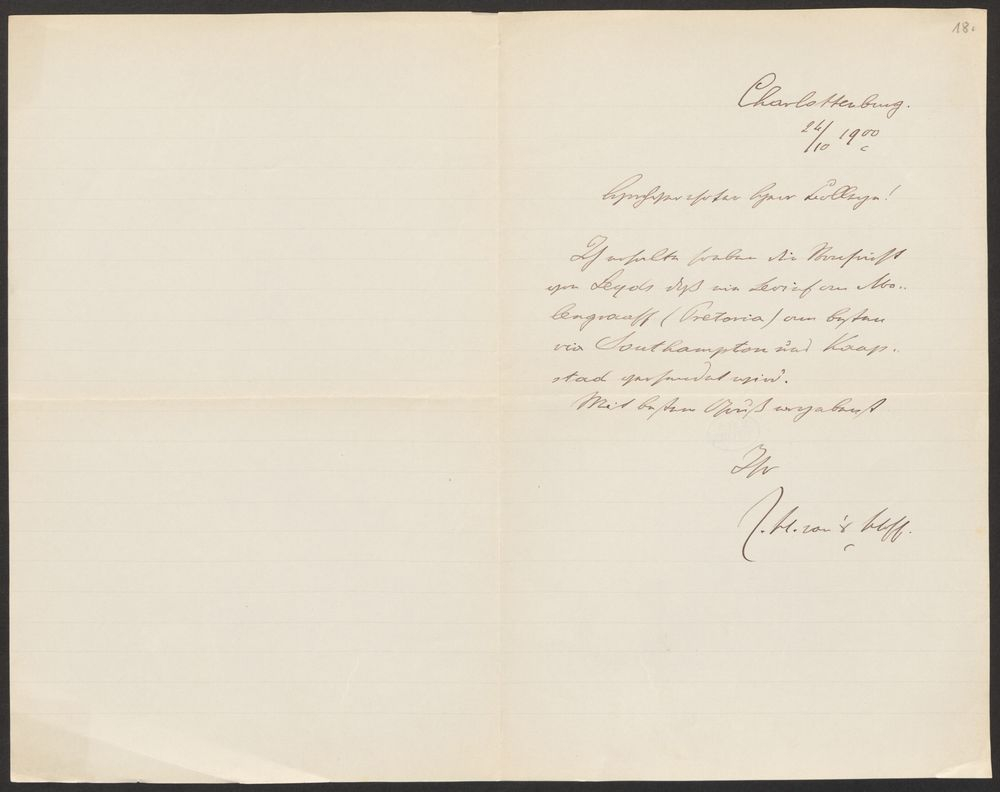 18.
Charlottenburg.
24/10 1900
Hochgeehrter Herr College!
Ich erhalte soeben die Nachricht
von Leyds daß ein Brief an Mo-
lengraaff (Pretoria) am besten
via Southampton und Kaap-
stad gesendet wird.
Mit bestem Gruß ergebenst
Ihr
J. H. van 't Hoff.